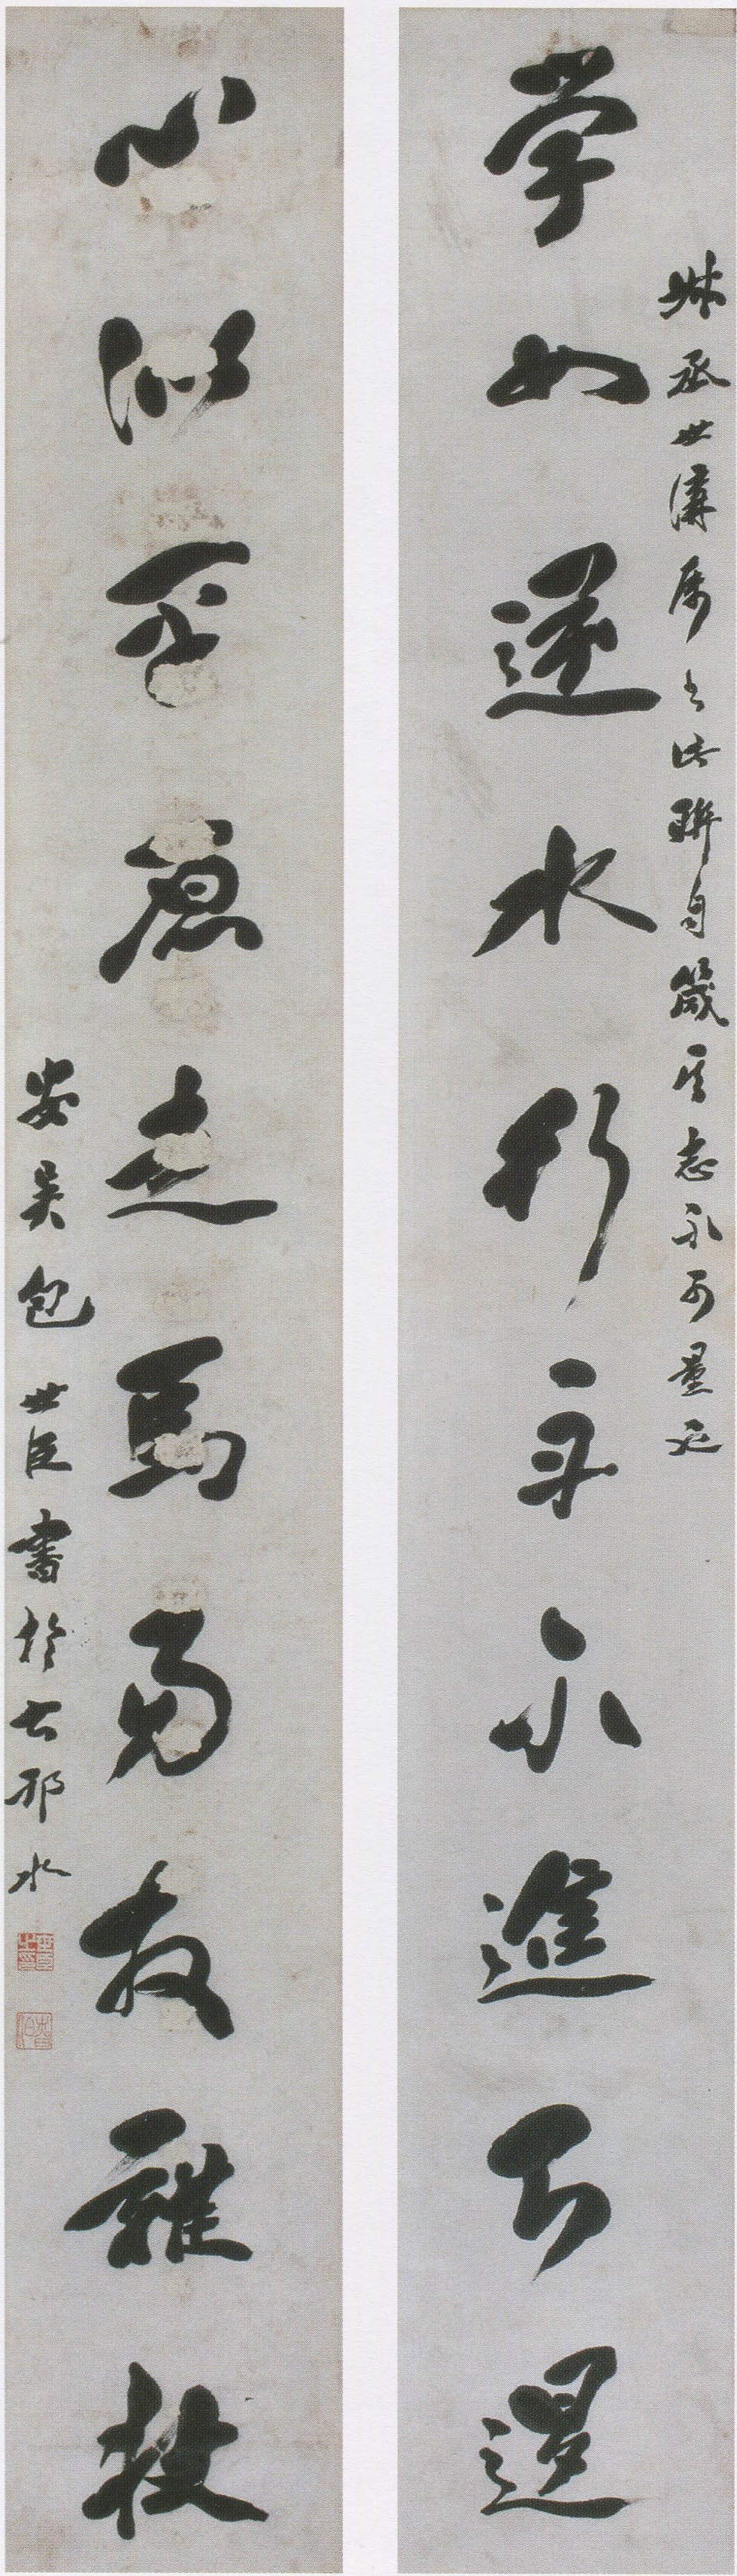 叔丞世講屬書此聯自箴其志不可量
學如逆水行舟不進即退
心似平原走馬易放難收
安吳包世臣書於古邗水